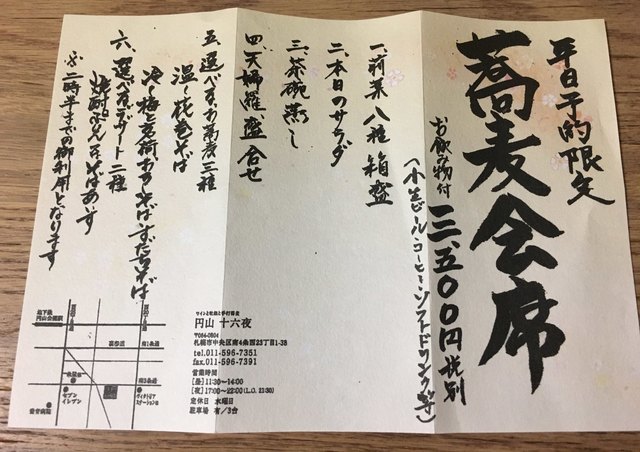 平日予約限定
蕎麦会席
お飲み物付 三、五〇〇円 税別
(小生ビール・コーヒー・ソフトドリンク等)
一、前菜八種箱盛
二、本日のサラダ
三、茶碗蒸し
四、天婦羅盛合せ
五、選べる、お蕎麦三種
温〜花巻そば
冷〜梅と茗荷おろしそば・すだちそば
六、選べるデザート二種
焼酎ぷりん・そばあいす
※二時半までの御利用となります
ワインと乾麺と手打蕎麦
円山 十六夜
〒064-0804
札幌市中央区南4条西23丁目1-38
tel.011-596-7351
fax.011-596-7391
営業時間
[昼]11:30〜14:00
[夜]17:00〜22:00(L.O. 21:30)
定休日 水曜日
駐車場 有/3台
地下鉄
円山公園駅
南1条通
セブン
イレブン